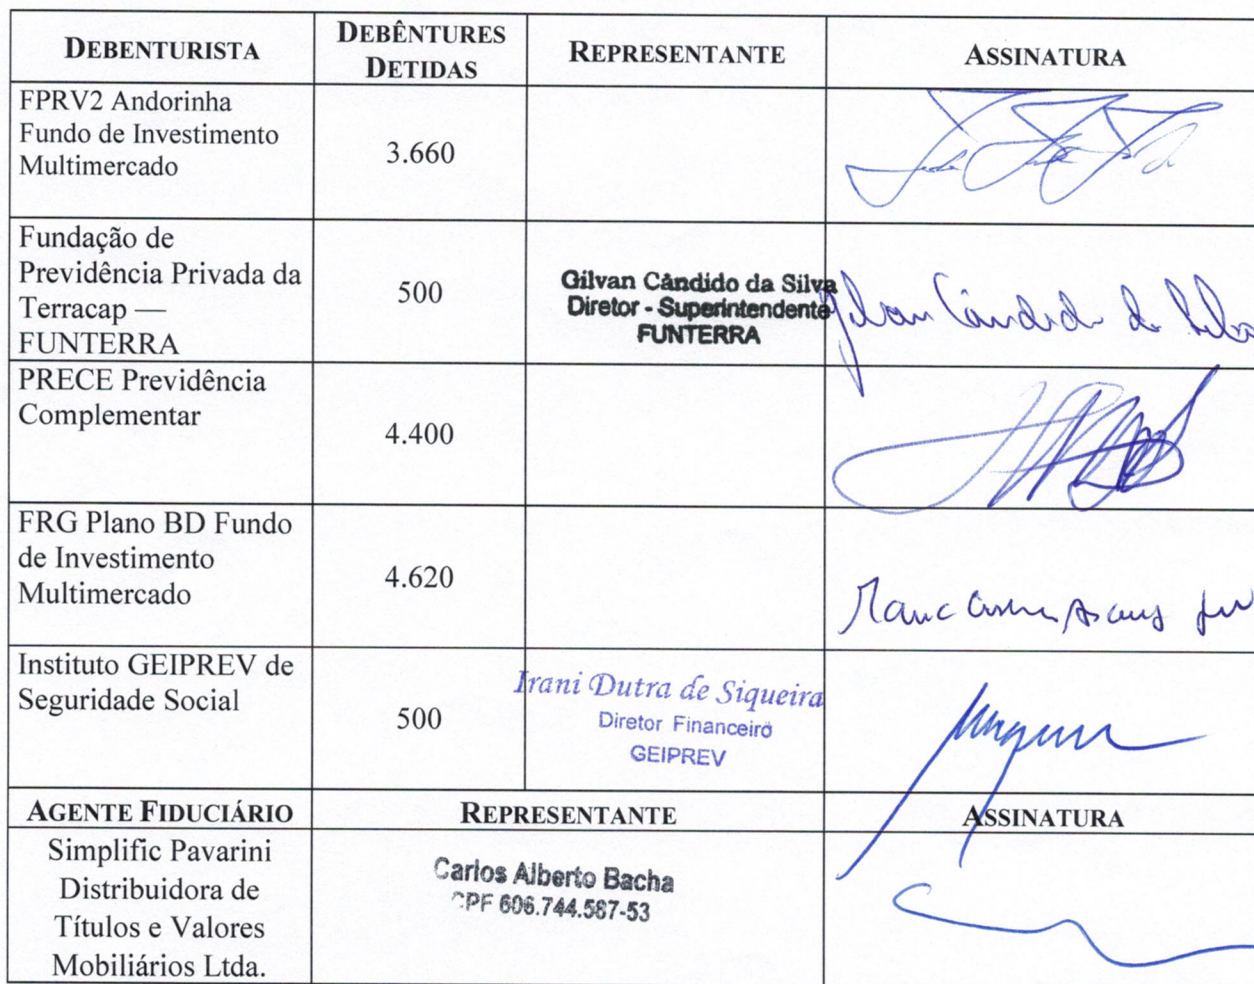 DEBENTURISTA
DEBÊNTURES
DETIDAS
REPRESENTANTE
ASSINATURA
FPRV2 Andorinha
Fundo de Investimento
Multimercado
3.660
Fundação de
Previdência Privada da
Terracap —
FUNTERRA
500
Gilvan Cândido da Silva
Diretor - Superintendente
FUNTERRA
Gilvan Cândido da Silva
PRECE Previdência
Complementar
4.400
FRG Plano BD Fundo
de Investimento
Multimercado
4.620
Instituto GEIPREV de
Seguridade Social
500
Irani Dutra de Siqueira
Diretor Financeiro
GEIPREV
AGENTE FIDUCIÁRIO
REPRESENTANTE
ASSINATURA
Simplific Pavarini
Distribuidora de
Títulos e Valores
Mobiliários Ltda.
Carlos Alberto Bacha
CPF 606.744.587-53